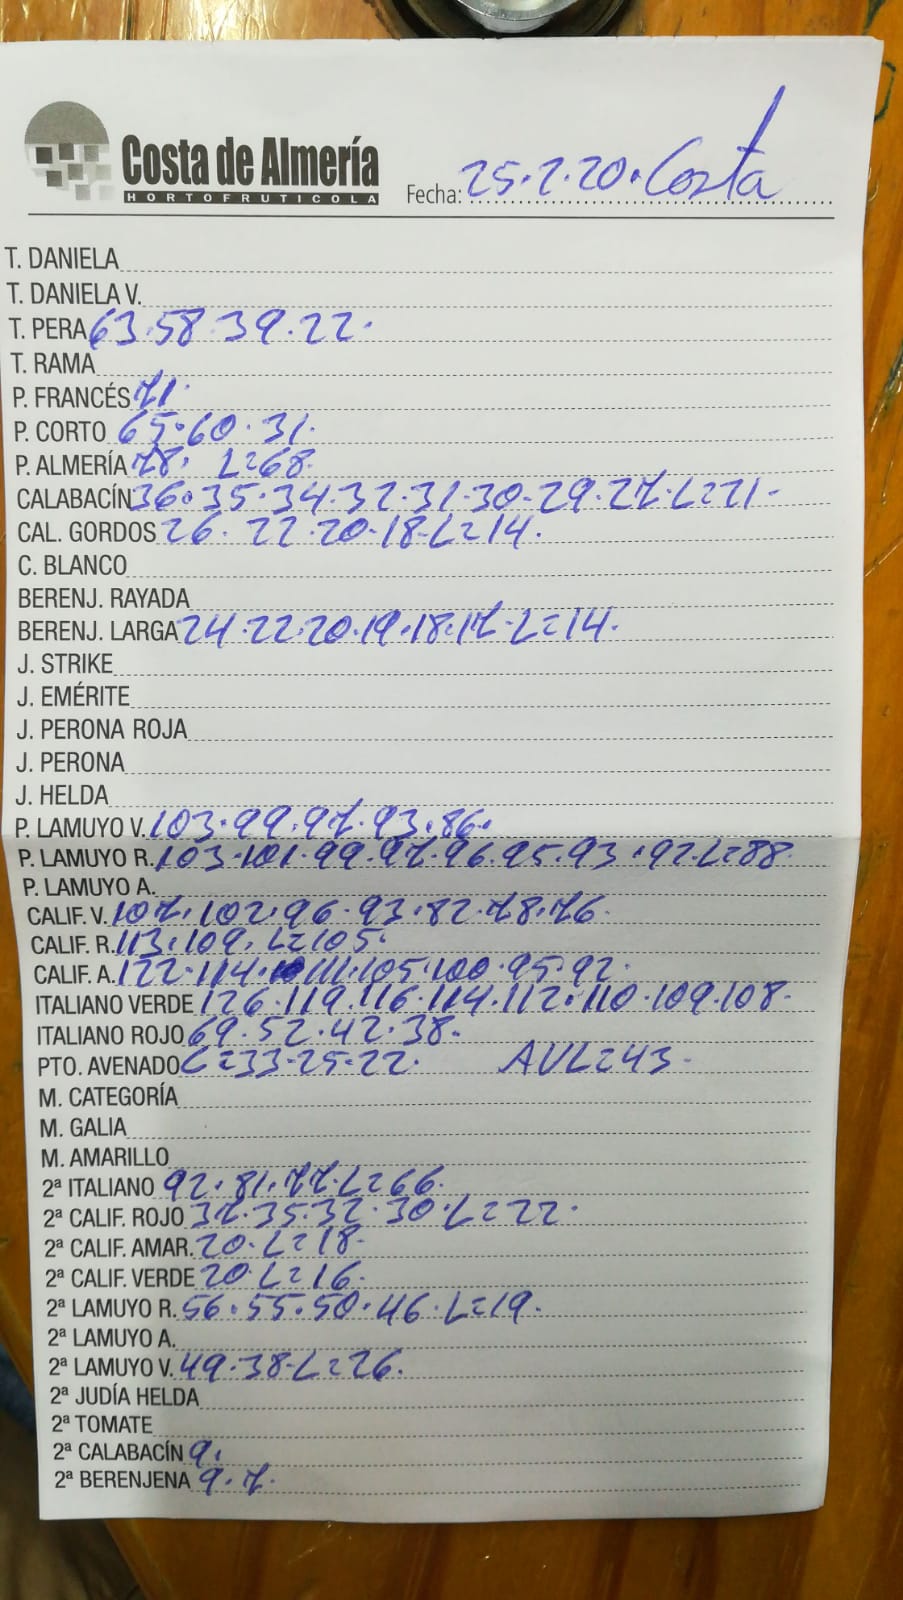 Costa de Almería
HORTOFRUTICOLA
Fecha: 25.2.20. Costa
T. DANIELA
T. DANIELA V.
T. PERA 63.58.39.22.
T. RAMA
P. FRANCÉS 71.
P. CORTO 65.60.31.
P. ALMERÍA 78. L=68.
CALABACÍN 36.35.34.32.31.30-29.27.L=21-
CAL. GORDOS 26.22.20.18-L=14.
C. BLANCO
BERENJ. RAYADA
BERENJ. LARGA 24.22.20.19.18.17.L=14.
J. STRIKE
J. EMÉRITE
J. PERONA ROJA
J. PERONA
J. HELDA
P. LAMUYO V. 103.99.97.93.86.
P. LAMUYO R. 103.101.99.97.96.95.93.92.L=88.
P. LAMUYO A.
CALIF. V. 107.102.96.93.82.78.76.
CALIF. R. 113.109. L=105.
CALIF. A. 122.114.111.105.100.95.92.
ITALIANO VERDE 126.119.116.114.112.110.109.108.
ITALIANO ROJO 69.52.42.38.
PTO. AVENADO L=33-25-22. AVL=43.
M. CATEGORÍA
M. GALIA
M. AMARILLO
2ª ITALIANO 92.81.77.L=66.
2ª CALIF. ROJO 37.35.32.30.L=22.
2ª CALIF. AMAR. 20.L=18.
2ª CALIF. VERDE 20.L=16.
2ª LAMUYO R. 56.55.50.46.L=19.
2ª LAMUYO A.
2ª LAMUYO V. 49.38-L=26.
2ª JUDÍA HELDA
2ª TOMATE
2ª CALABACÍN 9.
2ª BERENJENA 9.7.